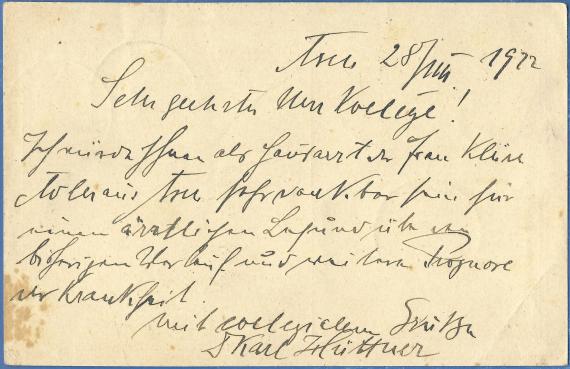 Asch 28/VIII 1922
Sehr geehrter Herr Kollege!
Ich würde Ihnen als Hausarzt der Frau Klara
Adler aus Asch sehr dankbar sein für
einen ärztlichen Befund über den
bisherigen Verlauf und weitere Prognose
der Krankheit.
mit collegialem Gruße
Dr Karl Hüttner